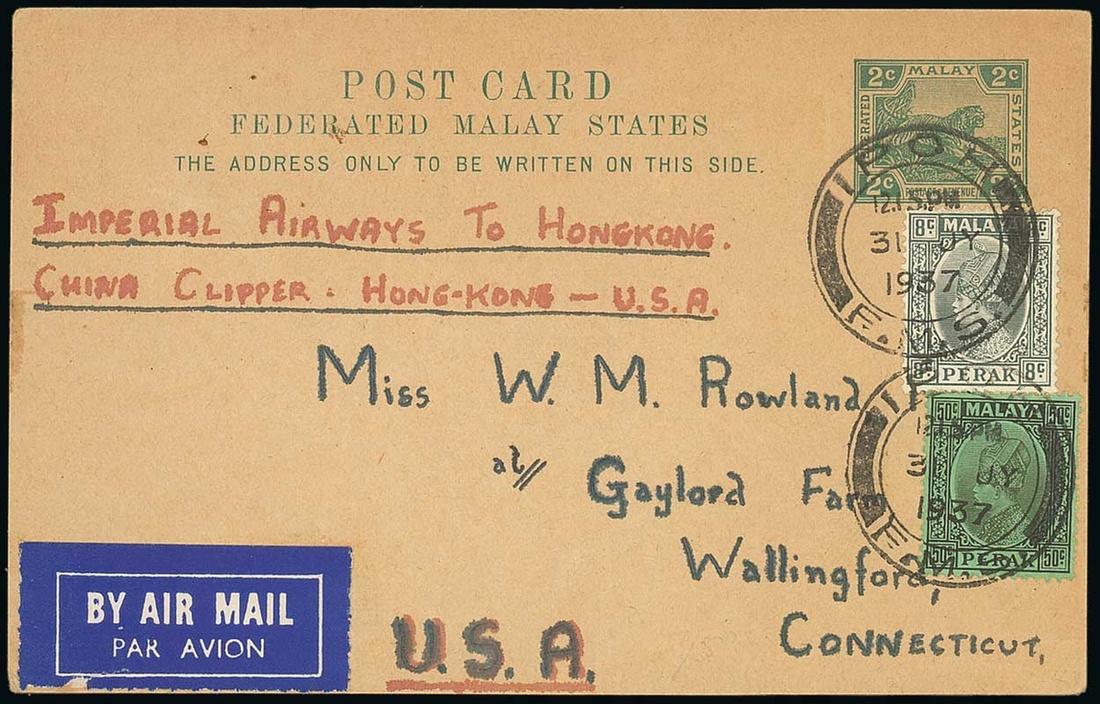 POST CARD
FEDERATED MALAY STATES
THE ADDRESS ONLY TO BE WRITTEN ON THIS SIDE.
2c MALAY 2c
FEDERATED
STATES
2c POSTAGE & REVENUE
IMPERIAL AIRWAYS TO HONGKONG.
CHINA CLIPPER. HONG-KONG — U.S.A.
IPOH
12.15PM
31 JY
1937
F.M.S.
8c MALAYA c
8c PERAK 8c
Miss W. M. Rowland
Gaylord Farm
Wallingford,
CONNECTICUT,
U.S.A.
50c MALAYA 50c
12.15PM
31 JY
1937
F.M.
50c PERAK 50c
BY AIR MAIL
PAR AVION